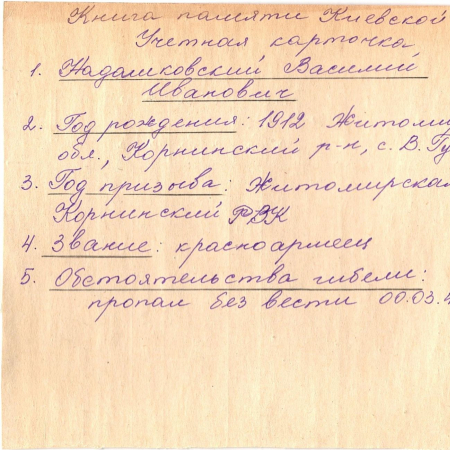 Книга памяти Киевской
Учетная карточка
1. Надашковский Василий
Иванович
2. Год рождения: 1912 Житоми
обл., Корнинский р-н, с. В. Гу
3. Год призыва: Житомирская
Корнинский РВК
4. Звание: красноармеец
5. Обстоятельства гибели:
пропал без вести 00.03.4